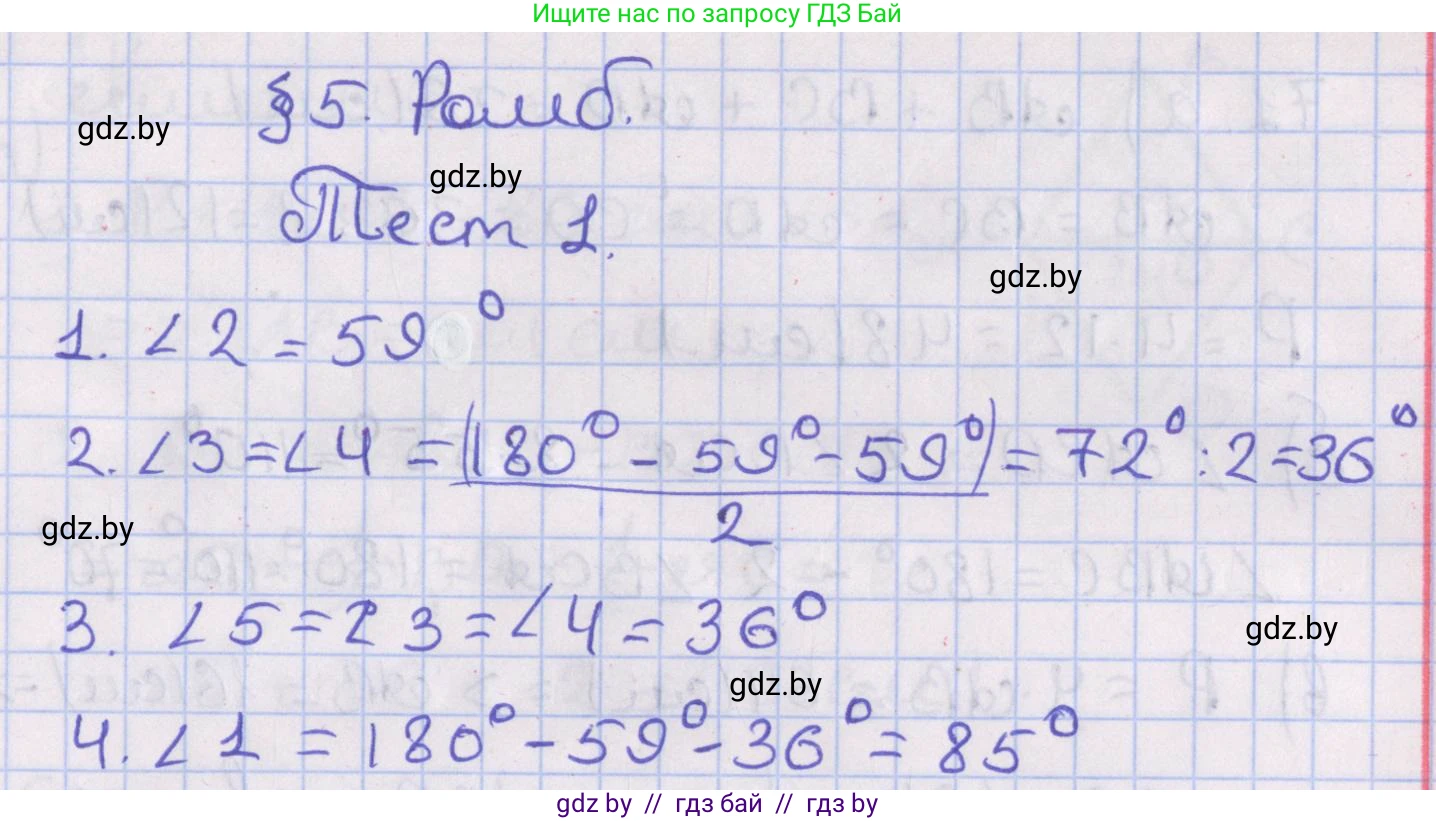 Ищите нас по запросу ГДЗ Бай
§ 5. Ромб.
gdz.by
gdz.by
Тест 1.
gdz.by
1. ∠2 = 59°
2. ∠3 = ∠4 = (180° - 59° - 59°) = 72° : 2 = 36°
2
gdz.by
3. ∠5 = ∠3 = ∠4 = 36°
gdz.by
gdz.by
4. ∠1 = 180° - 59° - 36° = 85°
gdz by // гдз бай // гдз by